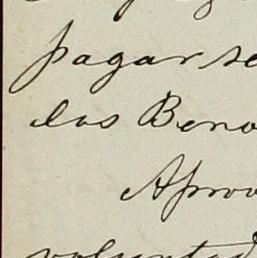 pagarse
los Beno
Aprov
voluntad